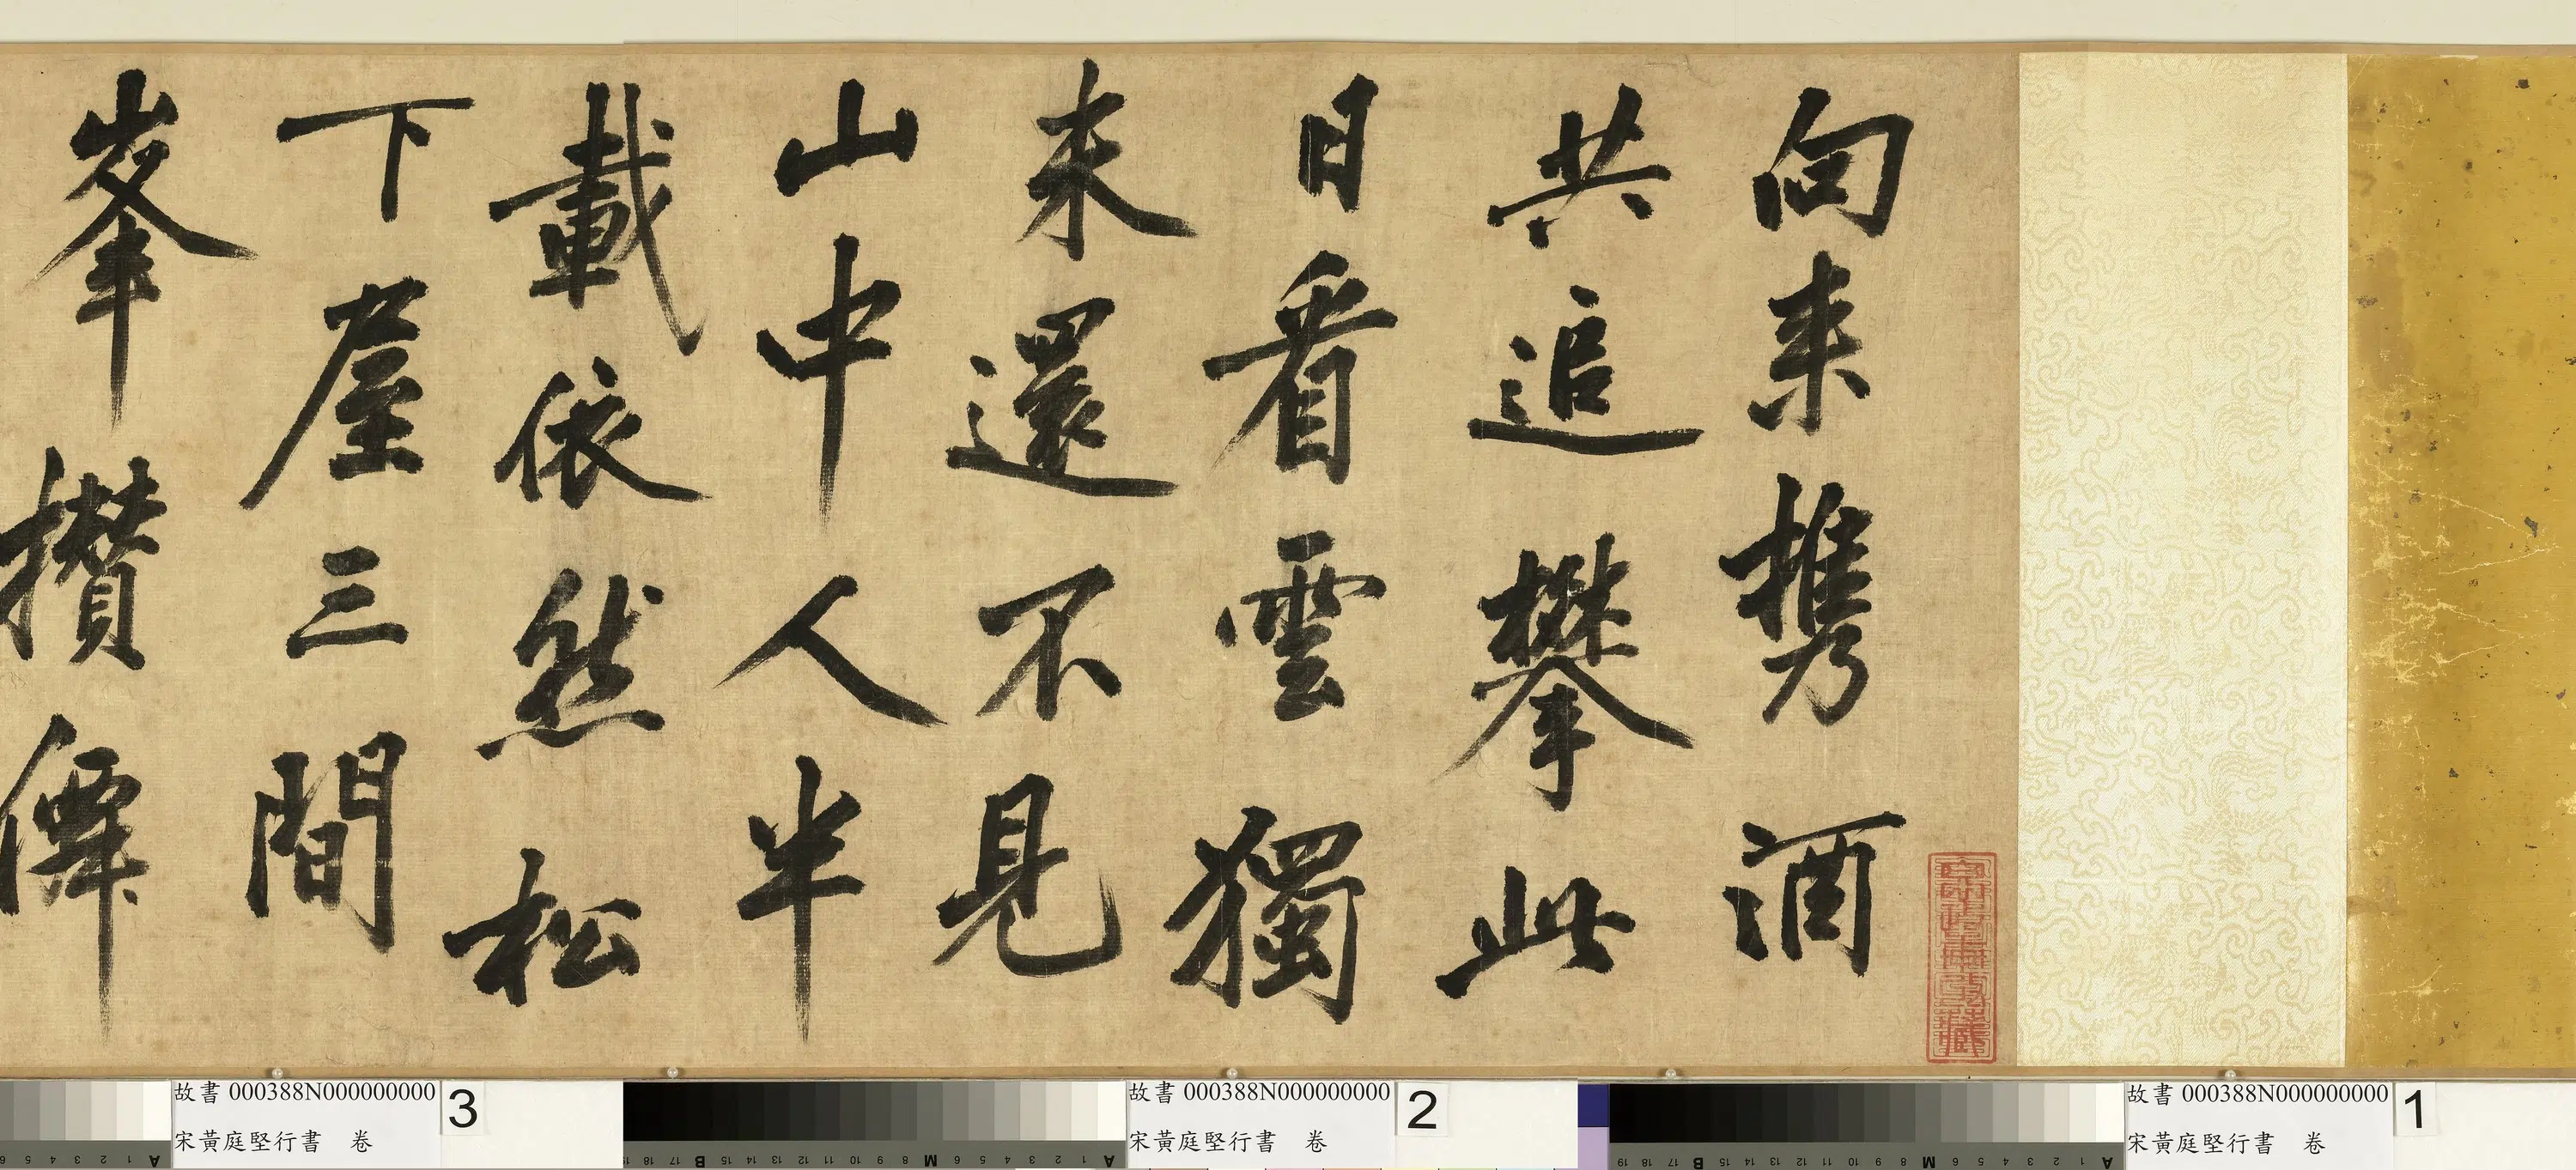 向来携酒
共追攀此
日看雲獨
未還不見
山中人半
載依然松
下屋三間
峯攢僊
故書 000388N000000000
宋黃庭堅行書 卷
1
故書 000388N000000000
宋黃庭堅行書 卷
2
故書 000388N000000000
宋黃庭堅行書 卷
3